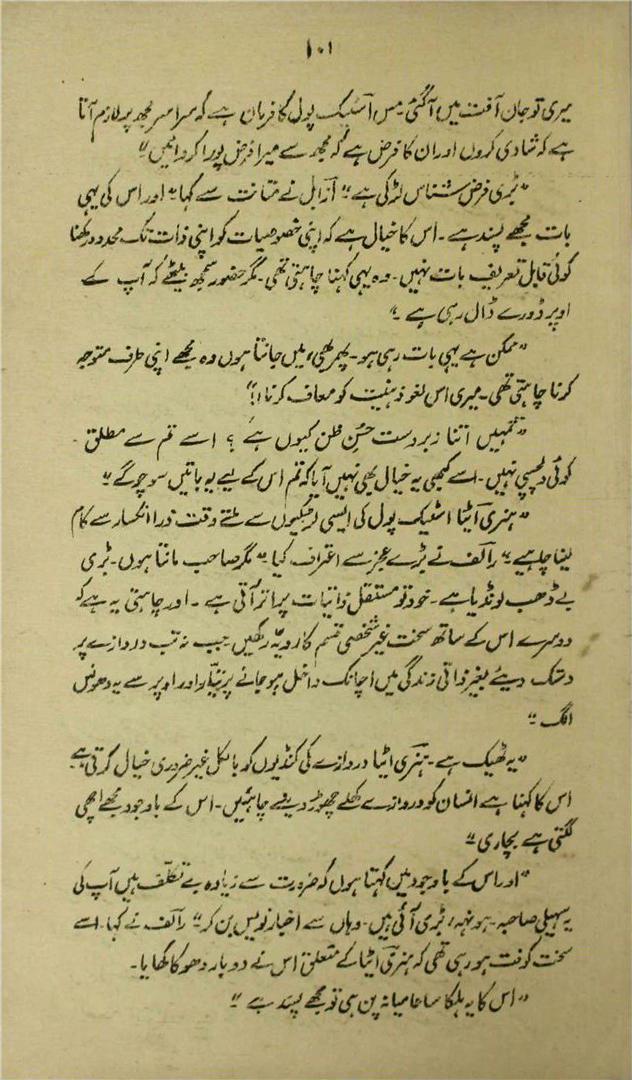 ۱۰۱
میری تو جان آفت میں آ گئی۔ مس آسٹیک پول کا فرمان ہے کہ سراسر مجھ پر لازم آتا
ہے کہ شادی کروں اور ان کا فرض ہے کہ مجھ سے میرا فرض پورا کروائیں"
"بڑی فرض شناس لڑکی ہے" آزابل نے متانت سے کہا" اور اس کی یہی
بات مجھے پسند ہے۔ اس کا خیال ہے کہ اپنی خصوصیات کو اپنی ذات تک محدود رکھنا
کوئی قابل تعریف بات نہیں۔ وہ یہی کہنا چاہتی تھی۔ مگر حضور سمجھ بیٹھے کہ آپ کے
اوپر ڈورے ڈال رہی ہے۔"
"ممکن ہے یہی بات رہی ہو۔ پھر بھی، میں جانتا ہوں وہ مجھے اپنی طرف متوجہ
کرنا چاہتی تھی۔ میری اس لغو ذہنیت کو معاف کرنا!"
"تمہیں اتنا زبردست حسن ظن کیوں ہے؟ اسے تم سے مطلق
کوئی دلچسپی نہیں۔ اسے کبھی یہ خیال بھی نہیں آیا کہ تم اس کے لیے یہ باتیں سوچو گے"
"ہنری آئیٹا اسٹیک پول کی ایسی لڑکیوں سے ملتے وقت ذرا انکسار سے کام
لینا چاہیے" رالف نے بڑے عجز سے اعتراف کیا۔ "مگر صاحب مانتا ہوں۔ بڑی
بے ڈھب لونڈیا ہے۔ خود تو مستقل ذاتیات پر اتر آتی ہے۔ اور چاہتی یہ ہے کہ
دوسرے اس کے ساتھ سخت غیر شخصی قسم کا رویہ رکھیں جب نہ تب دروازے پر
دستک دیئے بغیر ذاتی زندگی میں اچانک داخل ہو جانے پر تیار اور اوپر سے یہ دھونس
الگ"
"یہ ٹھیک ہے۔ ہنری آئیٹا دروازے کی کنڈیوں کو بالکل غیر ضروری خیال کرتی ہے
اس کا کہنا ہے انسان کو دروازے کھلے چھوڑ دینے چاہئیں۔ اس کے باوجود مجھے اچھی
لگتی ہے بچاری"
"اور اس کے باوجود میں کہتا ہوں کہ ضرورت سے زیادہ بے تکلف ہیں آپ کی
یہ سہیلی صاحبہ۔ ہونہہ، بڑی آئی ہیں۔ وہاں سے اخبار نویس بن کر" رالف نے کہا۔ اسے
سخت کوفت ہو رہی تھی کہ ہنری آئیٹا کے متعلق اس نے دوبار دھوکا کھایا۔
"اس کا یہ ہلکا سا عامیانہ پن ہی تو مجھے پسند ہے"